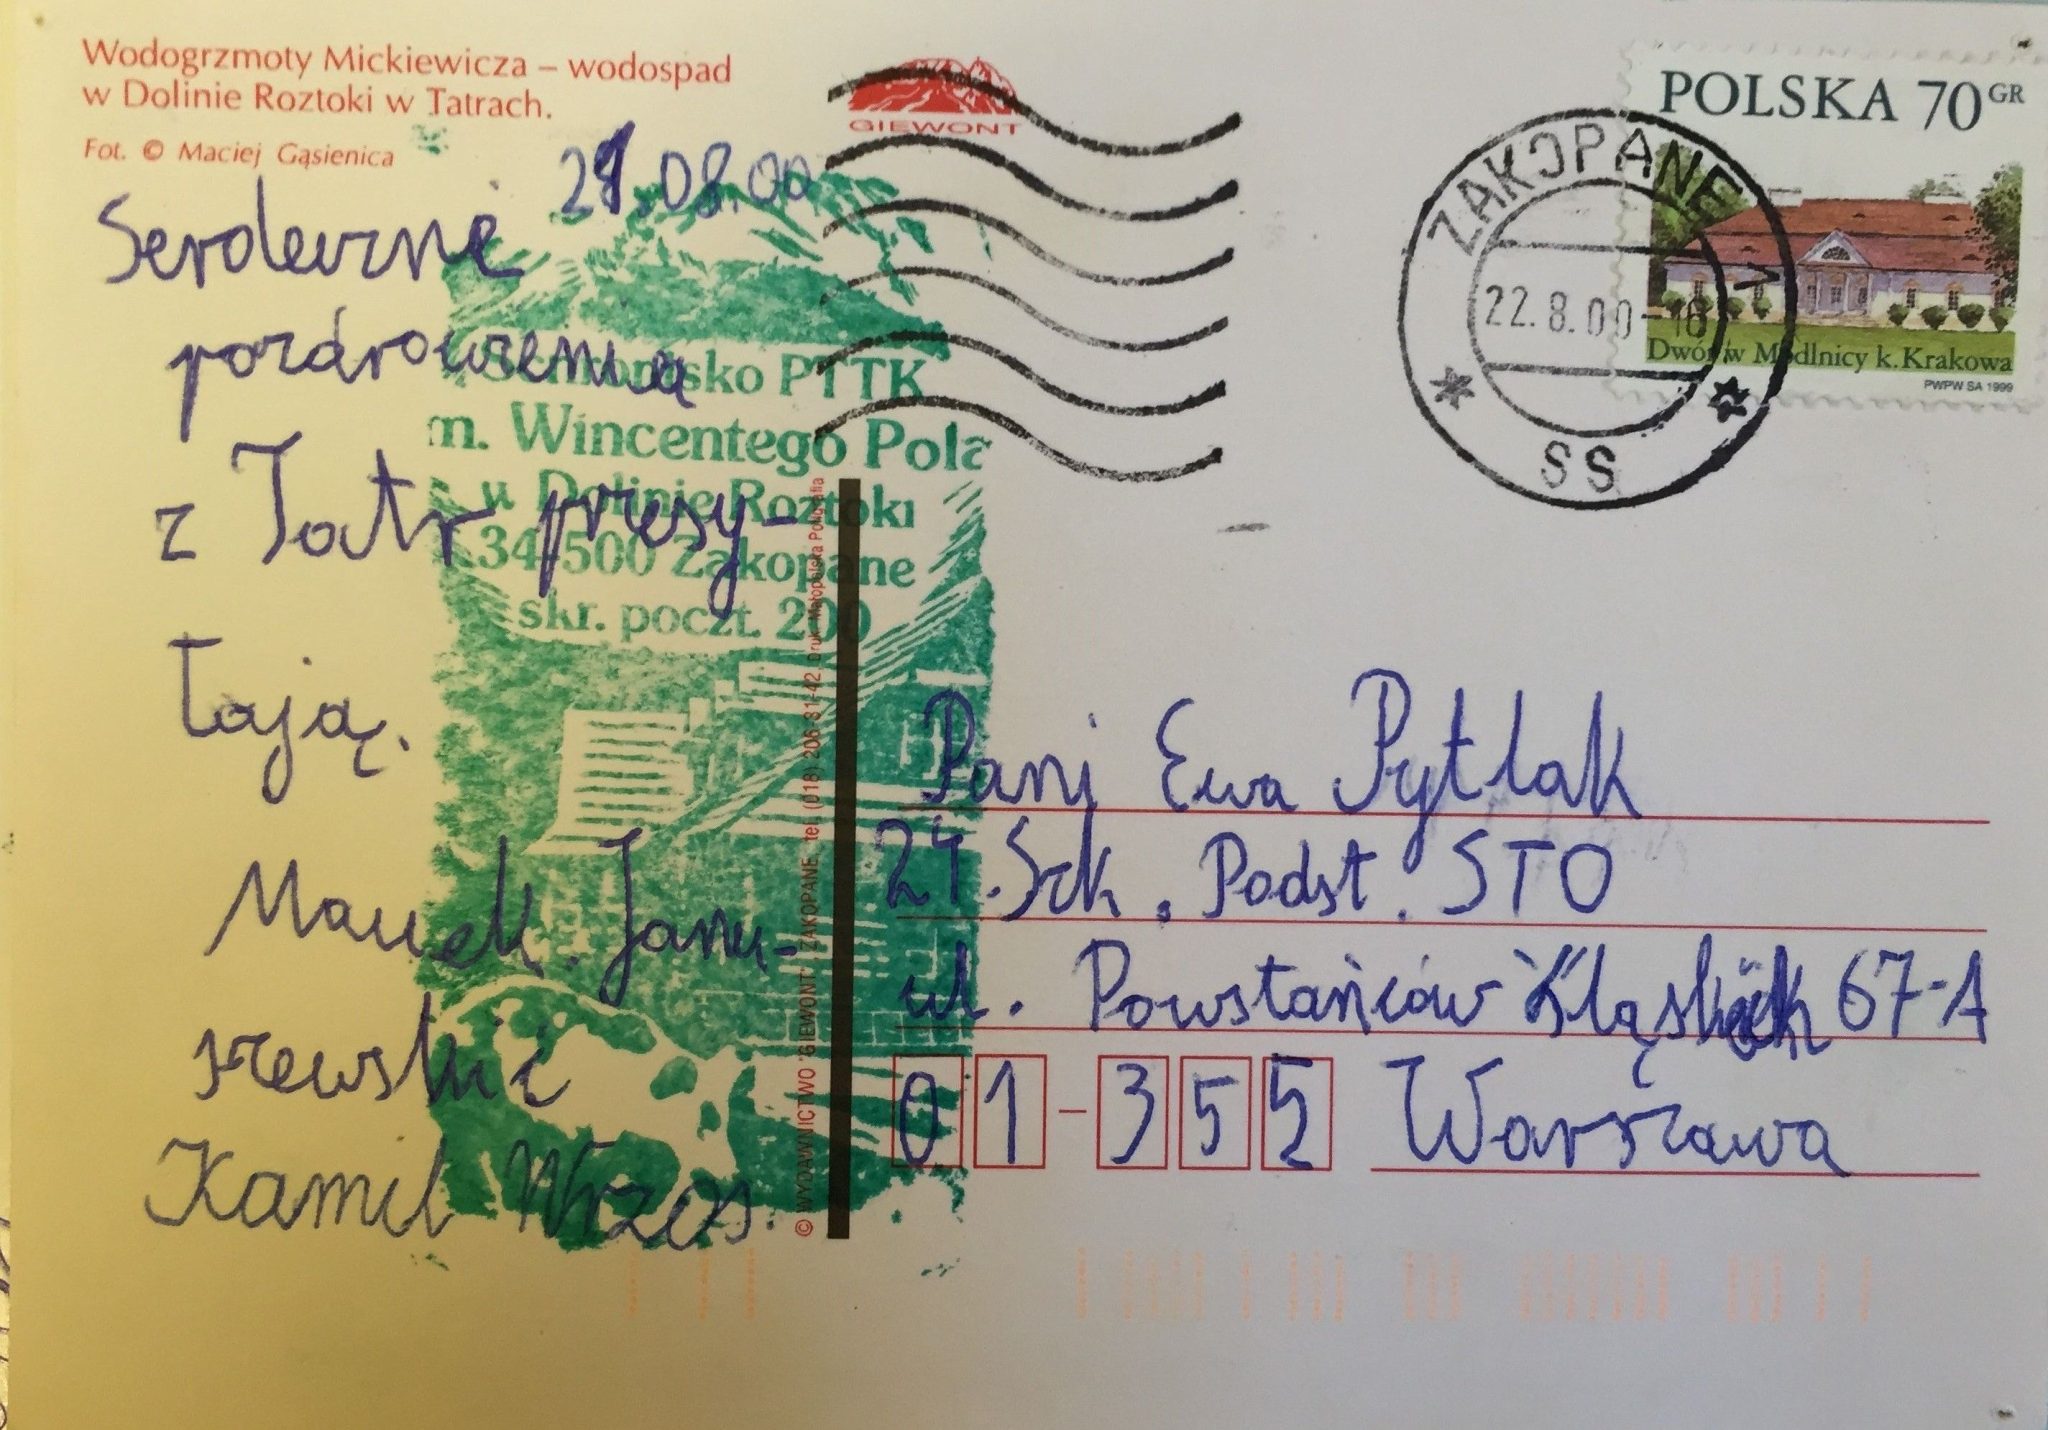 Wodogrzmoty Mickiewicza – wodospad
w Dolinie Roztoki w Tatrach.
Fot. © Maciej Gąsienica
GIEWONT
21.08.00
Serdeczne
pozdrowienia
z Tatr przesy-
łają.
Marek Janu-
szewski i
Kamil Wrzos.
Schronisko PTTK
m. Wincentego Pola
w Dolinie Roztoki
34-500 Zakopane
skr. poczt. 200
© WYDAWNICTWO "GIEWONT" ZAKOPANE, tel. (018) 206 81-42, Druk: Małopolska Poligrafia
POLSKA 70 GR
Dwór w Modlnicy k. Krakowa
PWPW SA 1999
ZAKOPANE 1
22.8.00-16
SS
Pani Ewa Pytlak
24. Szk. Podst. STO
ul. Powstańców Śląskich 67-A
01-355 Warszawa